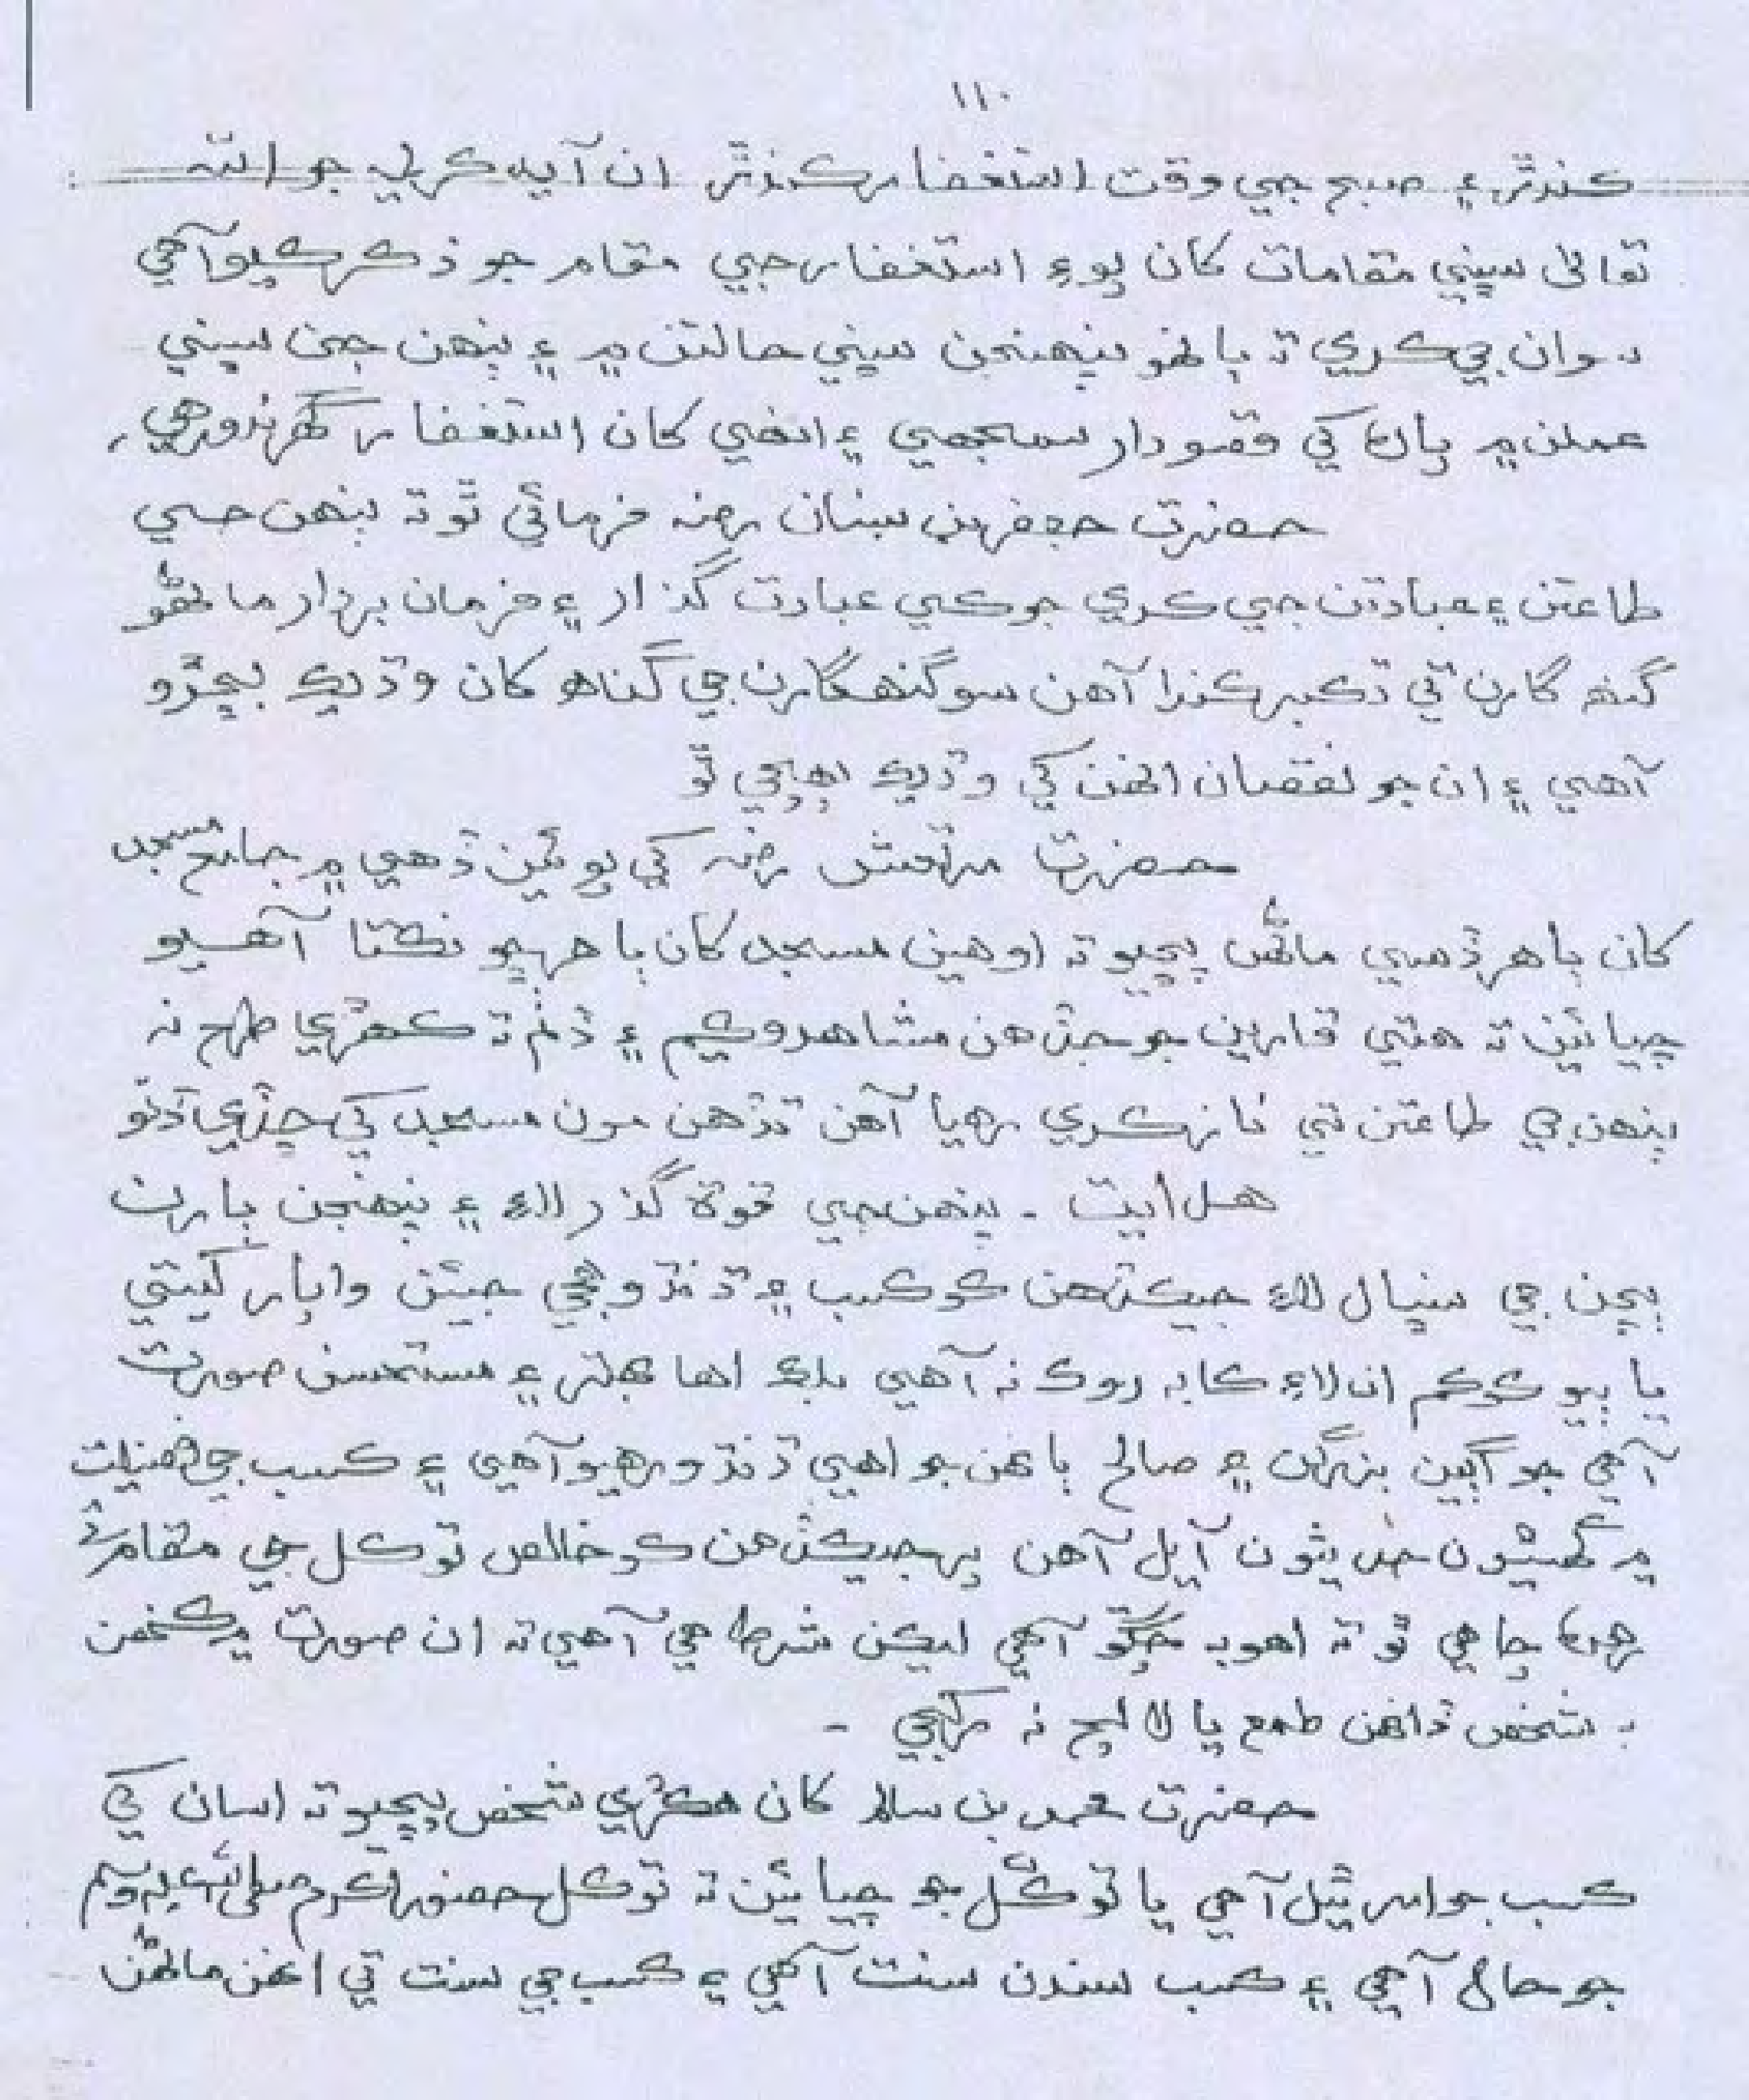 ١١٠
ڪندڙ ۽ صبح جي وقت استغفار ڪندڙ ان آيہ ڪريمہ جو اللہ
تعالیٰ سڀني مقامات کان پوءِ استغفار جي مقام جو ذڪر ڪيو آهي
جي ڪري تہ ٻانهو پنهنجن سڀني حالتن ۾ ۽ پنهن جن سڀني
عملن ۾ پاڻ کي قصودار سمجهي ۽ انهي کان استغفار گهرندو رهي
حضرت جعفر بن سنان رضہ فرمائي ٿو تہ پنهن جي
طاعتن ۽ عبادتن جي ڪري جو ڪي عبادت گذار ۽ فرمان بردار ماڻهو
گنھ گارن تي تڪبر ڪندا آهن سو گنهگارن جي گناھ کان وڌيڪ بڇڙو
آهي ۽ ان جو نقصان انهن کي وڌيڪ پهچي ٿو
حضرت مرتعش رضہ کي پوئين ڏهي ۾ جامع مسجد
کان ٻاهر ڏسي ماڻهن پڇيو تہ اوهين مسجد کان ٻاهر ڇو نڪتا آهيو
چيائين تہ هتي قارين جو جڏهن مشاهدو ڪيم ۽ ڏٺم تہ ڪهڙي طرح نہ
پنهن جي طاعتن تي ناز ڪري رهيا آهن تڏهن مون مسجد کي ڇڏي ڏنو
هدايت - پنهن جي قوة گذر لاءِ ۽ پنهنجن ٻارن
ٻچن جي سنڀال لاءِ جيڪڏهن ڪو ڪسب ۽ ڌنڌو ڪجي جيئن واپار کيتي
يا ٻيو ڪو ڪم ان لاءِ ڪا بہ روڪ نہ آهي بلڪ اها بهتر ۽ مستحسن صورت
آهي جو اڳين بزرگن ۽ صالح ٻانهن جو اهي ڌنڌو رهيو آهي ۽ ڪسب جي فضيلت
۾ گهڻيون حديثون آيل آهن پر جيڪڏهن ڪو خالص توڪل جي مقام تي
رهڻ چاهي ٿو تہ اهو بہ چڱو آهي ليڪن شرط هي آهي تہ ان صورت ۾ ڪنهن
بہ شخص ڏانهن طمع يا لالچ نہ رکجي -
حضرت محمد بن سالم کان هڪڙي شخص پڇيو تہ اسان کي
ڪسب جو امر ٿيل آهي يا توڪل جو چيائين تہ توڪل حضور اڪرم صلى اللہ عليہ وسلم
جو حال آهي ۽ ڪسب سندن سنت آهي ۽ ڪسب جي سنت تي انهن ماڻهن